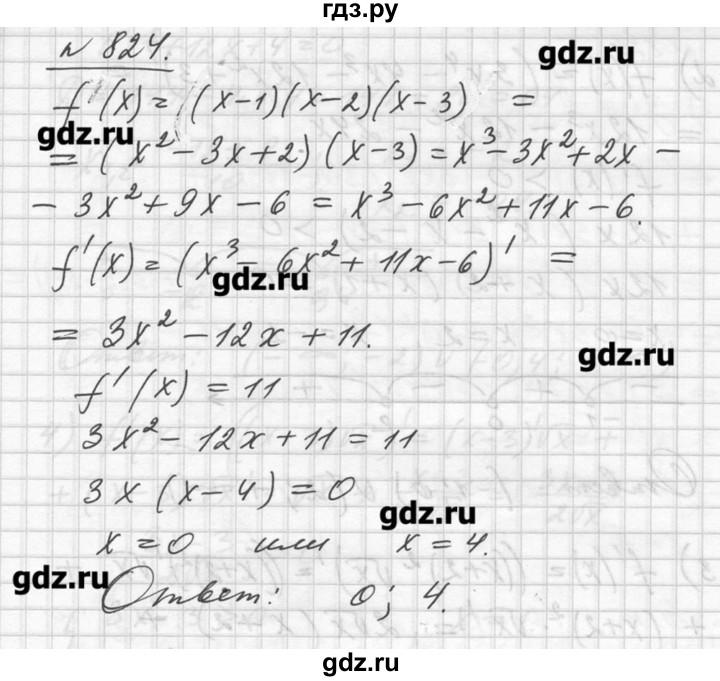 гдз.ру
№ 824.
gdz.ru
f'(x) = (x-1)(x-2)(x-3) =
gdz.ru
= (x²-3x+2)(x-3) = x³-3x²+2x -
- 3x²+9x-6 = x³-6x²+11x-6.
f'(x) = (x³- 6x²+ 11x-6)' =
gdz.ru
= 3x²-12x+11.
gdz.ru
f'(x) = 11
3x²-12x+11=11
3x(x-4)=0
gdz.ru
x=0 или x=4.
gdz.ru
Ответ: 0; 4.
gdz.ru